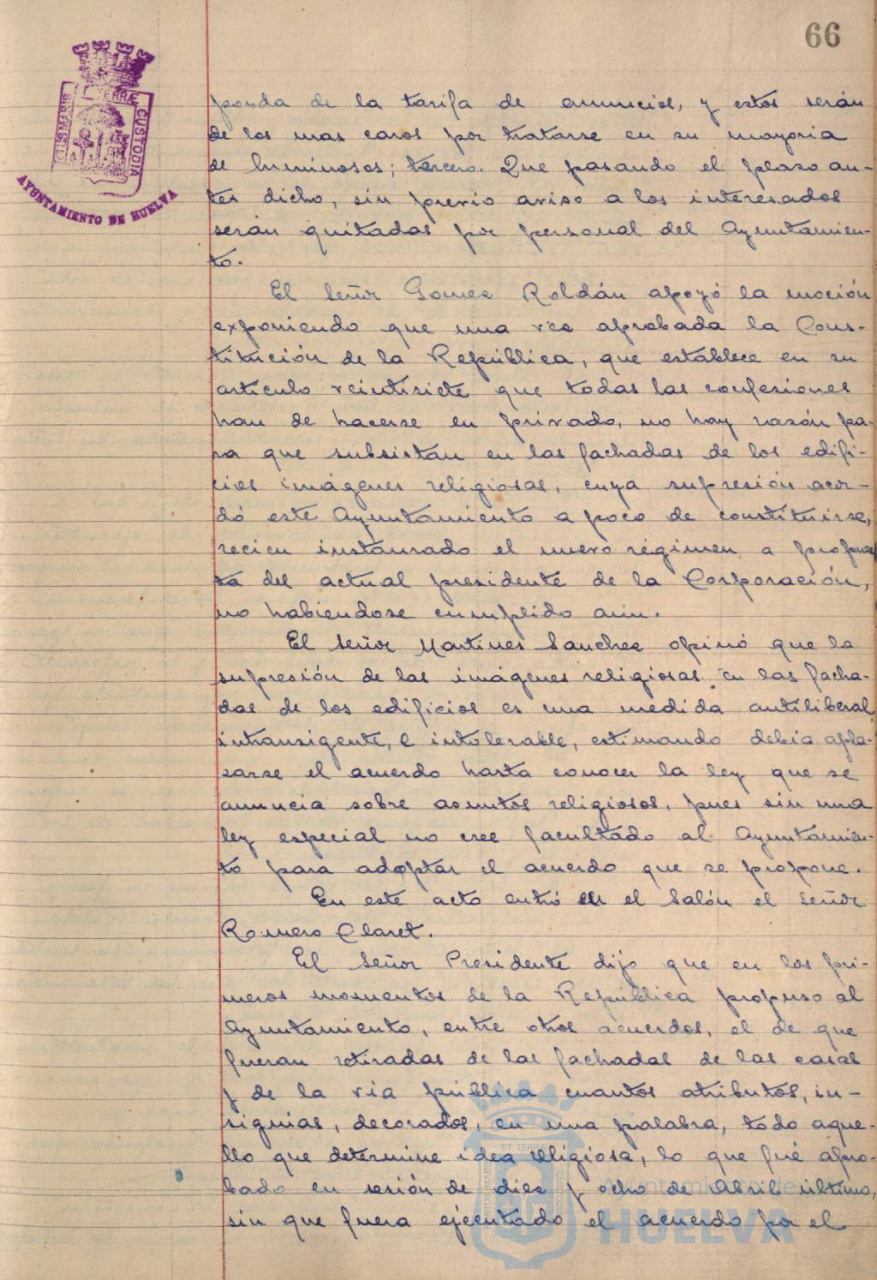 66
TERRÆ
CUSTODIA
AYUNTAMIENTO DE HUELVA
ponda de la tarifa de anuncios, y estos serán
de los mas caros por tratarse en su mayoria
de luminosos; tercero. Que pasando el plazo an-
tes dicho, sin previo aviso a los interesados
serán quitados por personal del Ayuntamien-
to.
El Señor Gomez Roldán apoyó la moción
exponiendo que una vez aprobada la Cons-
titución de la República, que establece en su
articulo veintisiete que todas las confesiones
han de hacerse en privado, no hay razón pa-
ra que subsistan en las fachadas de los edifi-
cios imágenes religiosas, cuya supresión acor-
dó este Ayuntamiento a poco de constituirse,
recien instaurado el nuevo régimen a propues
ta del actual presidente de la Corporación,
no habiendose cumplido aun.
El Señor Martinez Sanchez opinó que la
supresión de las imágenes religiosas en las facha-
das de los edificios es una medida antiliberal,
intransigente, e intolerable, estimando debia apla-
zarse el acuerdo hasta conocer la ley que se
anuncia sobre asuntos religiosos, pues sin una
ley especial no cree facultado al Ayuntamien-
to para adoptar el acuerdo que se propone.
En este acto entró en el Salón el Señor
Romero Claret.
El Señor Presidente dijo que en los pri-
meros momentos de la República propuso al
Ayuntamiento, entre otros acuerdos, el de que
fueran retiradas de las fachadas de las casas
y de la via pública cuantos atributos, in-
signias, decorados, en una palabra, todo aque-
llo que determine idea religiosa, lo que fué apro-
bado en sesión de diez y ocho de Abril último,
sin que fuera ejecutado el acuerdo por el
Ayuntamiento de
HUELVA